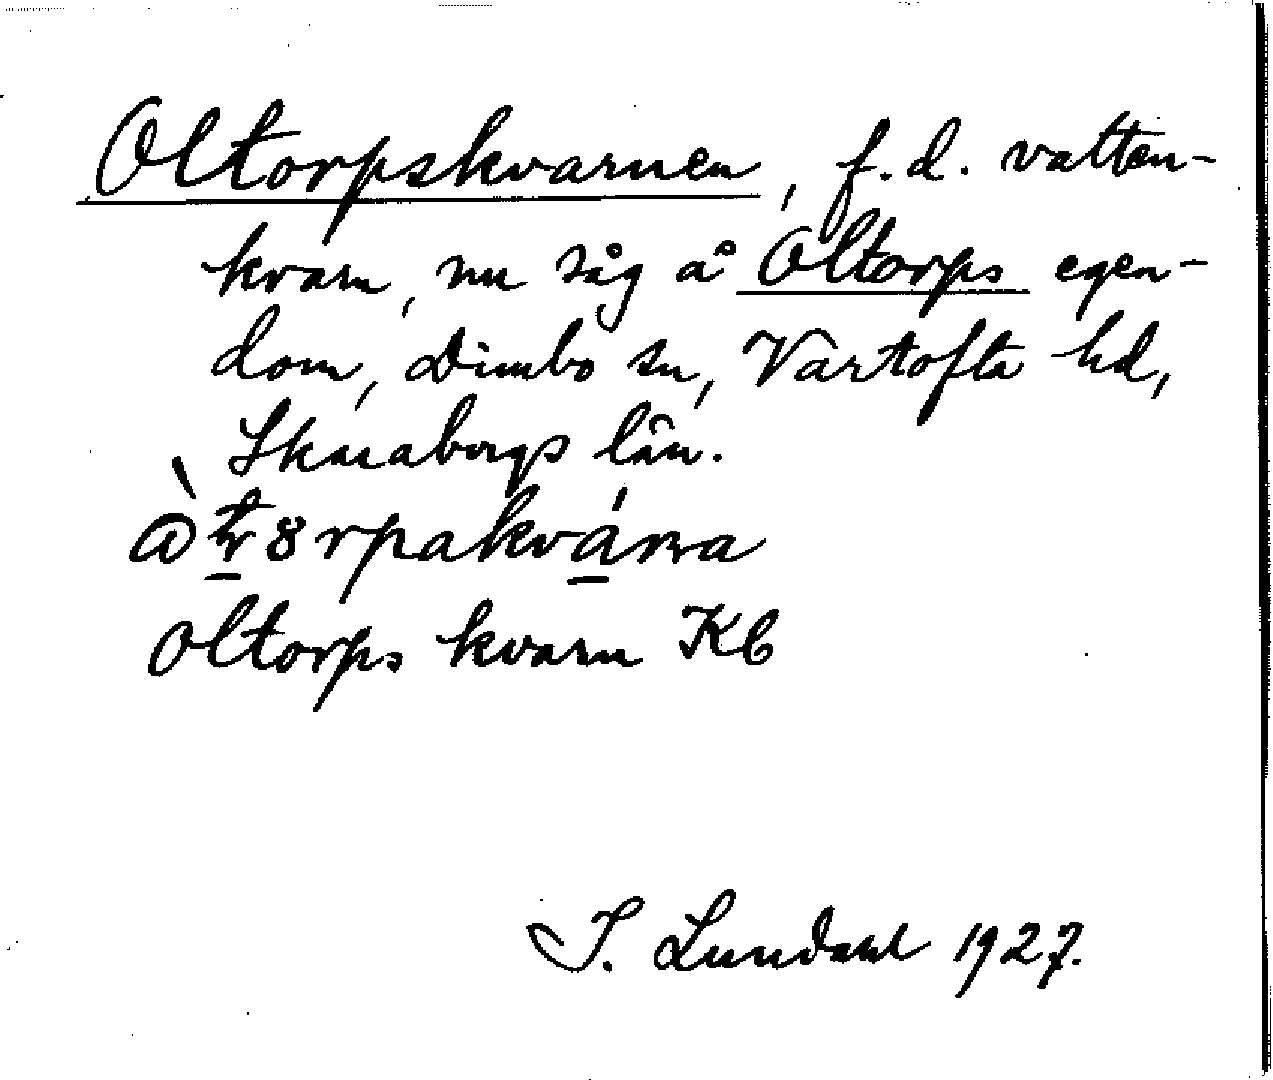 Oltorpskvarnen, f.d. vatten-
kvarn, nu såg å Oltorps egen-
dom, Dimbo sn, Vartofta hd,
Skaraborgs län.
Oltorps kvarn Kb
I. Lundahl 1927.